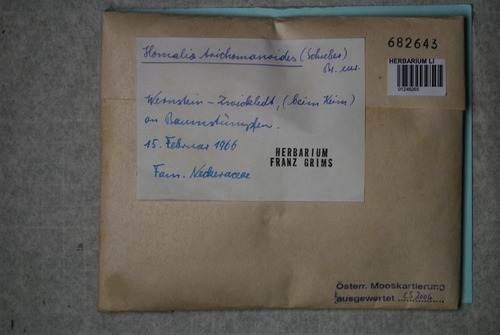 682643
HERBARIUM LI
Homalia trichomanoides (Schreber)
Br. eur.
Wernstein - Zwickledt, (beim Keim)
an Baumstümpfen.
15. Februar 1966
HERBARIUM
FRANZ GRIMS
Fam. Neckeraceae
Österr. Mooskartierung
ausgewertet